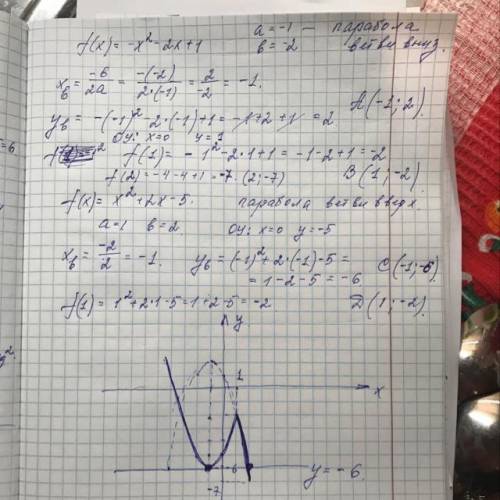 f(x) = -x² - 2x + 1
a = -1 — парабола
b = -2 ветви вниз.
x_в = -в/2a = -(-2)/2·(-1) = 2/-2 = -1.
y_в = -(-1)² - 2·(-1) + 1 = -1 + 2 + 1 = 2
A(-1; 2).
Оу: x=0 y=1
f(1) = -1² - 2·1 + 1 = -1 - 2 + 1 = -2
B(1; -2).
f(2) = -4 - 4 + 1 = -7. (2; -7)
f(x) = x² + 2x - 5. парабола ветви вверх
a = 1 в = 2. Оу: x=0 y=-5
x_в = -2/2 = -1. y_в = (-1)² + 2·(-1) - 5 =
= 1 - 2 - 5 = -6
C(-1; -6).
f(1) = 1² + 2·1 - 5 = 1 + 2 - 5 = -2
D(1; -2).
y
1
x
-6
y = -6
-7